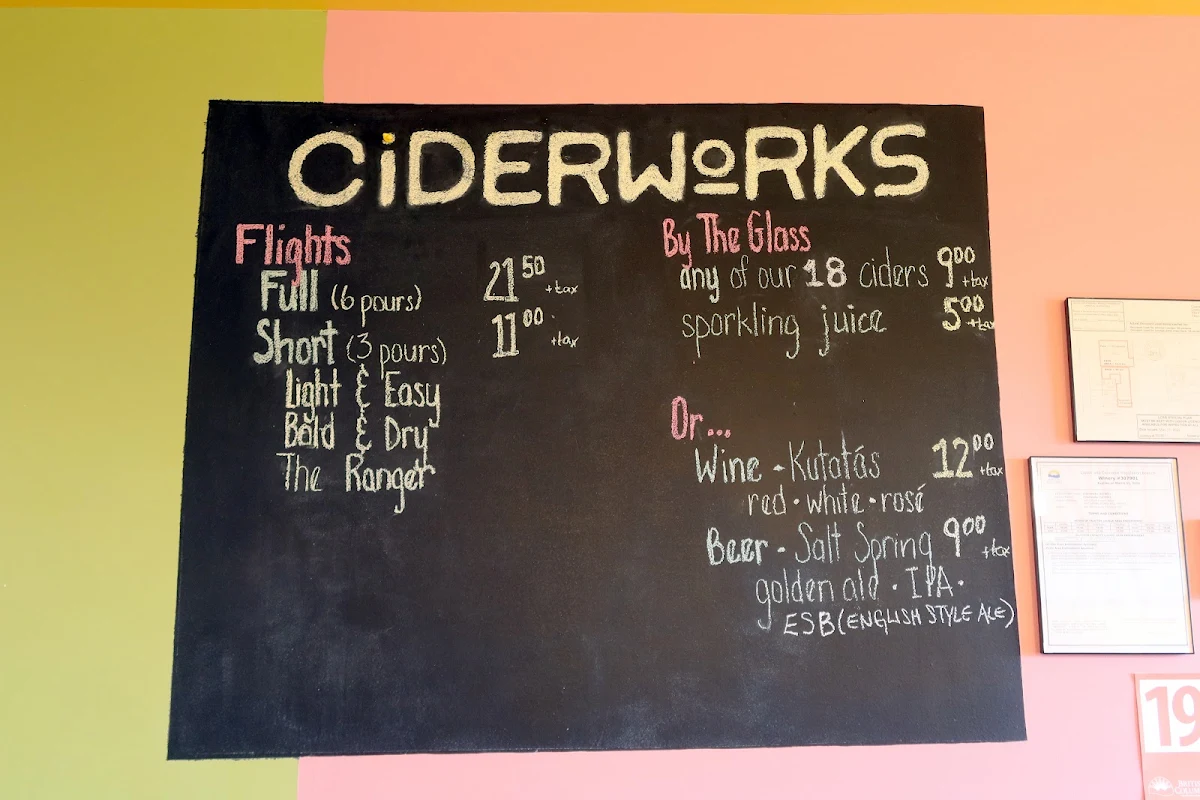 CiDERWoRKS
Flights
Full (6 pours) 21 50 +tax
Short (3 pours) 11 00 +tax
Light & Easy
Bold & Dry
The Ranger
By The Glass
any of our 18 ciders 9 00 +tax
sparkling juice 5 00 +tax
Or...
Wine - Kutatás 12 00 +tax
red · white · rosé
Beer - Salt Spring 9 00 +tax
golden ale · IPA ·
ESB (ENGLISH STYLE ALE)
19